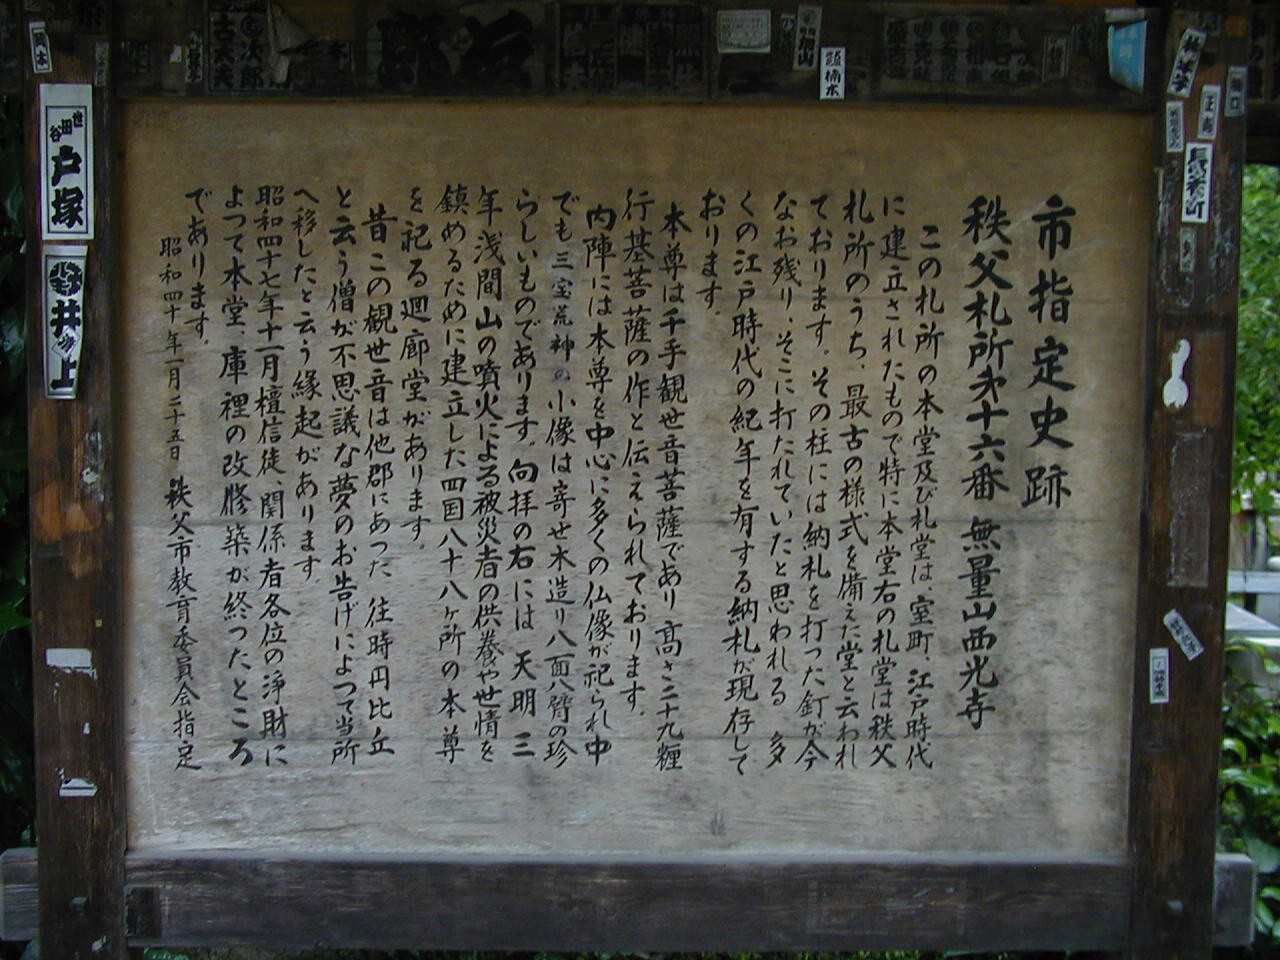 市指定史跡
秩父札所第十六番 無量山西光寺
この札所の本堂及び札堂は、室町、江戸時代
に建立されたもので特に本堂右の札堂は秩父
札所のうち、最古の様式を備えた堂と云われ
ております。その柱には納札を打った釘が今
なお残り、そこに打たれていたと思われる 多
くの江戸時代の紀年を有する納札が現存して
おります。
本尊は千手観世音菩薩であり高さ二十九糎
行基菩薩の作と伝えられております。
内陣には本尊を中心に多くの仏像が祀られ中
でも三宝荒神の小像は寄せ木造り八面八臂の珍
らしいものであります。向拝の右には 天明三
年浅間山の噴火による被災者の供養や世情を
鎮めるために建立した四国八十八ヶ所の本尊
を祀る廻廊堂があります。
昔この観世音は他郡にあった 往時円比丘
と云う僧が不思議な夢のお告げによって当所
へ移したと云う縁起があります
昭和四十七年十一月檀信徒、関係者各位の浄財に
よつて本堂、庫裡の改修築が終ったところ
であります。
昭和四十年一月二十五日 秩父市教育委員会指定
谷田世
戸塚
井上